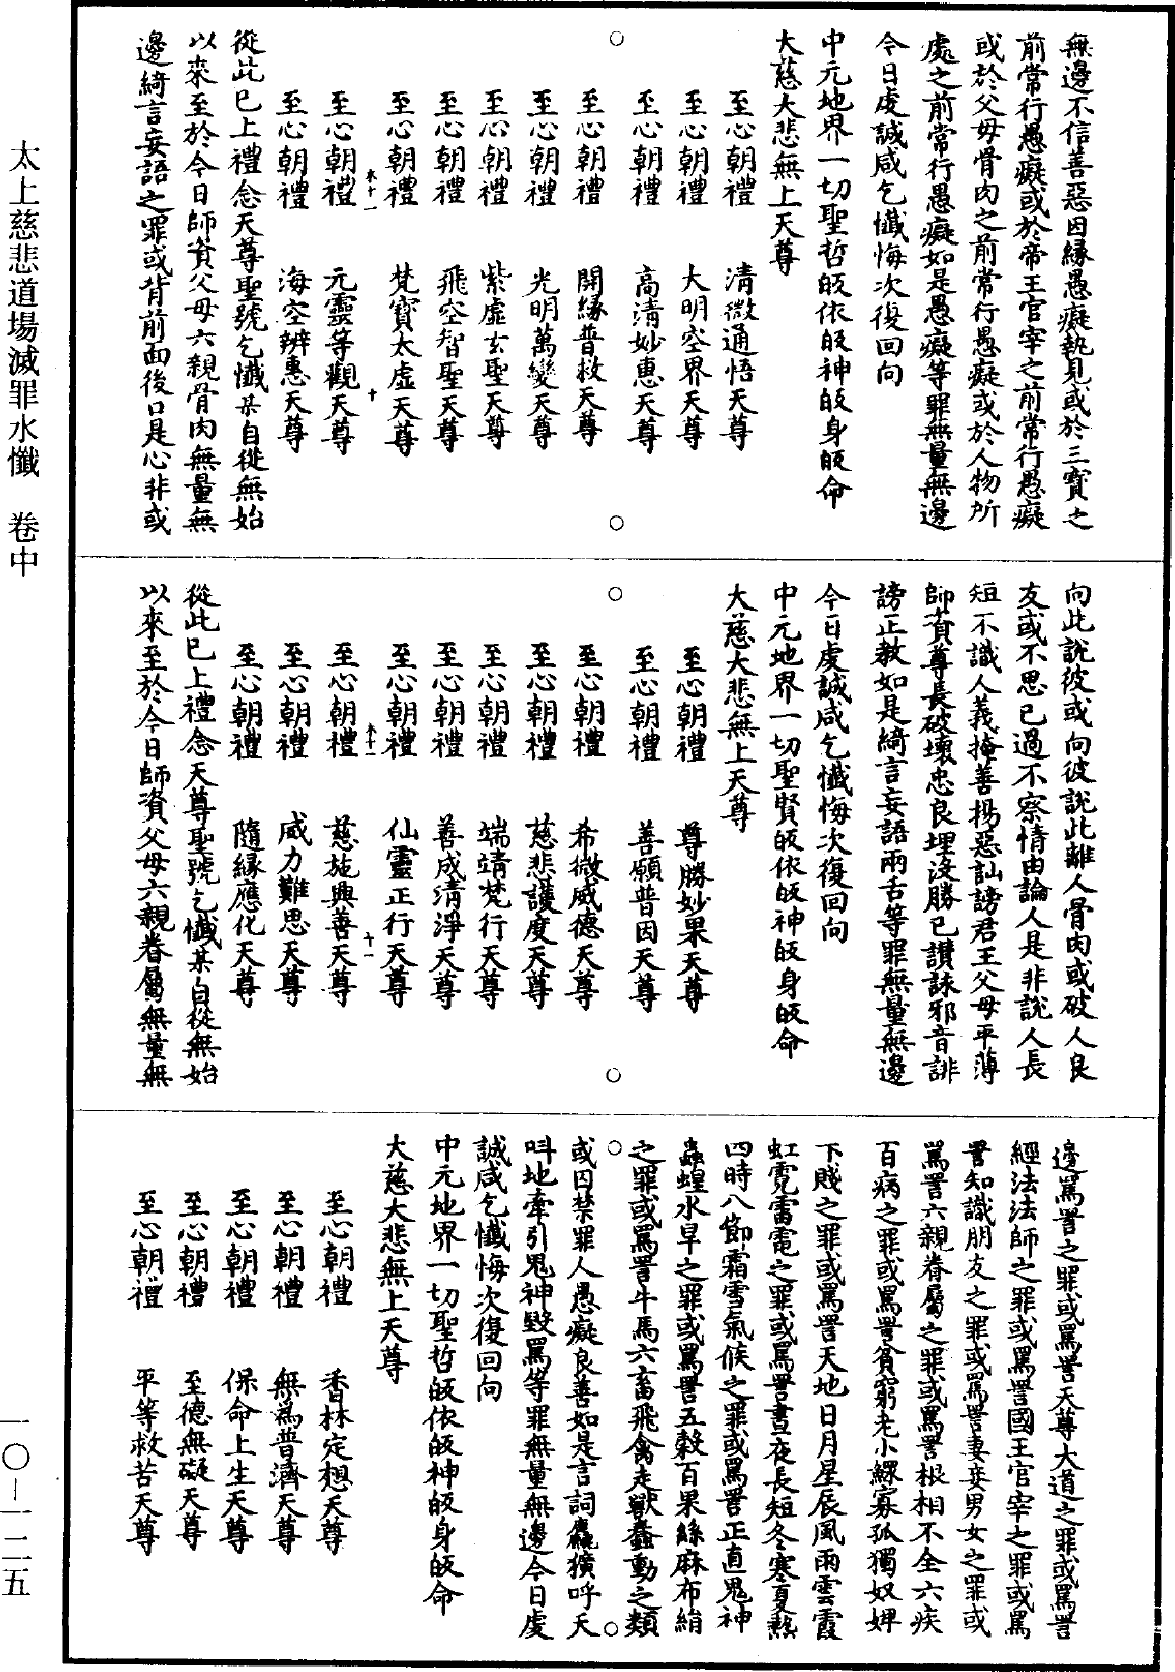 無邊不信善惡因緣愚癡執見或於三寶之
前常行愚癡或於帝王官宰之前常行愚癡
或於父母骨肉之前常行愚癡或於人物所
處之前常行愚癡如是愚癡等罪無量無邊
今日虔誠咸乞懺悔次復回向
中元地界一切聖哲皈依皈神皈身皈命
大慈大悲無上天尊
至心朝禮　清微通悟天尊
至心朝禮　大明空界天尊
至心朝禮　高清妙惠天尊
○　○
至心朝禮　開緣普救天尊
至心朝禮　光明萬變天尊
至心朝禮　紫虛玄聖天尊
至心朝禮　飛空智聖天尊
至心朝禮　梵寶太虛天尊
木十一　十
至心朝禮　元靈等觀天尊
至心朝禮　海空辨惠天尊
從此已上禮念天尊聖號乞懺某自從無始
以來至於今日師資父母六親骨肉無量無
邊綺言妄語之罪或背前面後口是心非或
向此說彼或向彼說此離人骨肉或破人良
友或不思已過不察情由論人是非說人長
短不識人義掩善揚惡訕謗君王父母平薄
師資尊長破壞忠良埋沒勝已讚詠邪音誹
謗正教如是綺言妄語兩舌等罪無量無邊
今日虔誠咸乞懺悔次復回向
中元地界一切聖賢皈依皈神皈身皈命
大慈大悲無上天尊
至心朝禮　尊勝妙果天尊
至心朝禮　善願普因天尊
○　○
至心朝禮　希微威德天尊
至心朝禮　慈悲護度天尊
至心朝禮　端靖梵行天尊
至心朝禮　善成清淨天尊
至心朝禮　仙靈正行天尊
木十一　十一
至心朝禮　慈施興善天尊
至心朝禮　威力難思天尊
至心朝禮　隨緣應化天尊
從此已上禮念天尊聖號乞懺某自從無始
以來至於今日師資父母六親眷屬無量無
邊罵詈之罪或罵詈天尊大道之罪或罵詈
經法法師之罪或罵詈國王官宰之罪或罵
詈知識朋友之罪或罵詈妻妾男女之罪或
罵詈六親眷屬之罪或罵詈根相不全六疾
百病之罪或罵詈貧窮老小鰥寡孤獨奴婢
下賤之罪或罵詈天地日月星辰風雨雲霞
虹霓雷電之罪或罵詈晝夜長短冬寒夏熱
四時八節霜雪氣候之罪或罵詈正直鬼神
蟲蝗水旱之罪或罵詈五穀百果絲麻布絹
之罪或罵詈牛馬六畜飛禽走獸蠢動之類
○　○
或囚禁罪人愚癡良善如是言詞麤獷呼天
叫地牽引鬼神毀罵等罪無量無邊今日虔
誠咸乞懺悔次復回向
中元地界一切聖哲皈依皈神皈身皈命
大慈大悲無上天尊
至心朝禮　香林定想天尊
至心朝禮　無為普濟天尊
至心朝禮　保命上生天尊
至心朝禮　至德無礙天尊
至心朝禮　平等救苦天尊
太上慈悲道場滅罪水懺　卷中
一〇—一二五